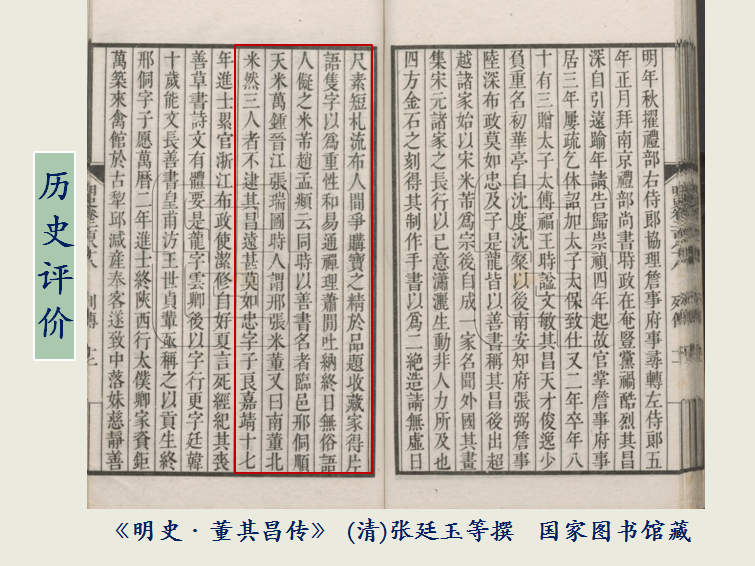 历史评价
明年秋擢禮部右侍郎協理詹事府事尋轉左侍郎五
年正月拜南京禮部尚書時政在奄豎黨禍酷烈其昌
深自引遠踰年請告歸崇禎四年起故官掌詹事府事
居三年屢疏乞休詔加太子太保致仕又二年卒年八
十有三贈太子太傅福王時諡文敏其昌天才俊逸少
負重名初華亭自沈度沈粲以後南安知府張弼詹事
陸深布政莫如忠及子是龍皆以善書稱其昌後出超
越諸家始以宋米芾爲宗後自成一家名聞外國其畫
集宋元諸家之長行以己意瀟灑生動非人力所及也
四方金石之刻得其制作手書以爲二絶造請無虛日
尺素短札流布人間爭購寶之精於品題收藏家得片
語隻字以爲重性和易通禪理蕭閒吐納終日無俗語
人儗之米芾趙孟頫云同時以善書名者臨邑邢侗順
天米萬鍾晉江張瑞圖時人謂邢張米董又曰南董北
米然三人者不逮其昌遠甚莫如忠字子良嘉靖十七
年進士累官浙江布政使潔修自好夏言死經紀其喪
善草書詩文有體要是龍字雲卿後以字行更字廷韓
十歲能文長善書皇甫汸王世貞輩亟稱之以貢生終
邢侗字子愿萬曆二年進士終陝西行太僕卿家資鉅
萬築來禽館於古犁邱減產奉客遂致中落妹慈靜善
《明史·董其昌传》 (清)张廷玉等撰 国家图书馆藏